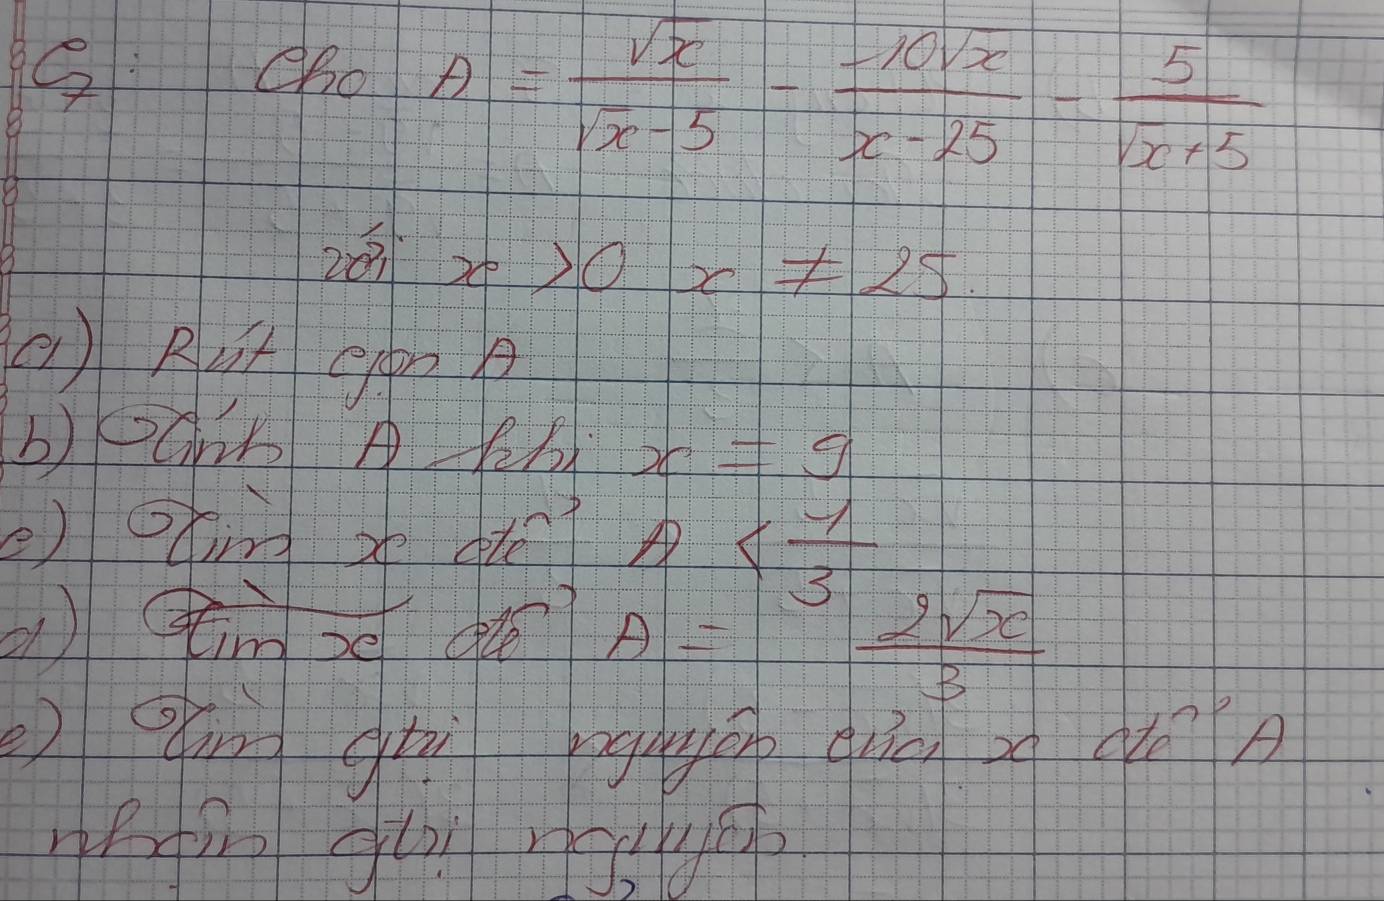 C7: Cho A = √x/(√x-5) - 10√x/(x-25) - 5/(√x+5)
với x > 0 x ≠ 25.
a) Rút gọn A
b) Tính A khi x = 9
c) Tìm x để A < 1/3
d) Tìm x để A = 2√x/3
e) Tìm gtrị nguyên của x để A
nhận gtrị nguyên.